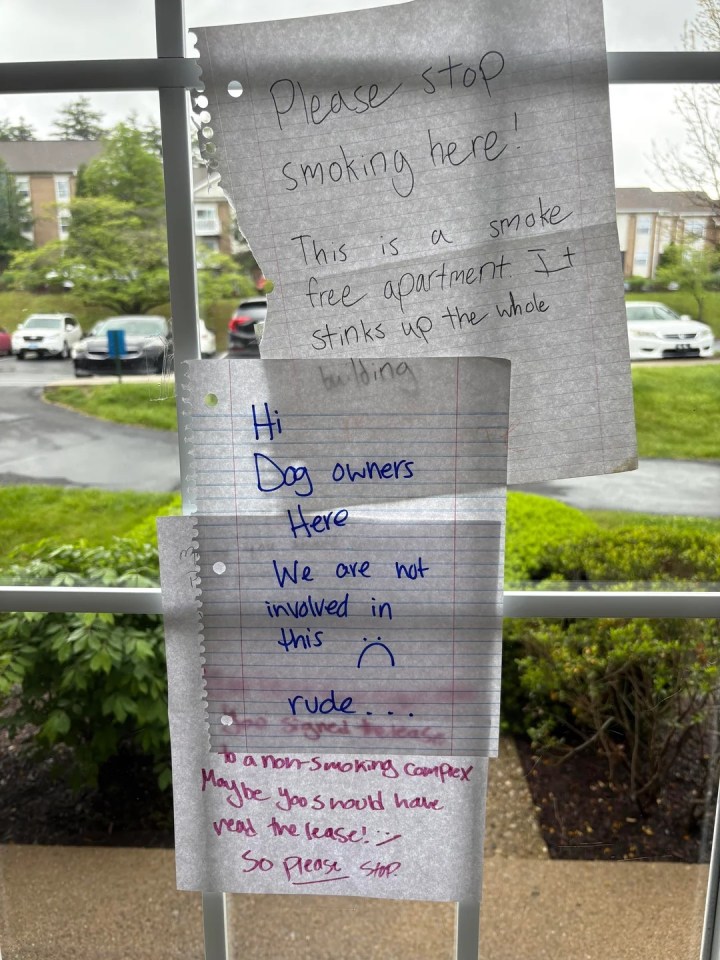 Please stop
smoking here!
This is a smoke
free apartment. It
stinks up the whole
building
Hi
Dog owners
Here
We are not
involved in
this
rude...
You signed the lease
to a non-smoking complex
Maybe you should have
read the lease! :-)
So please stop.